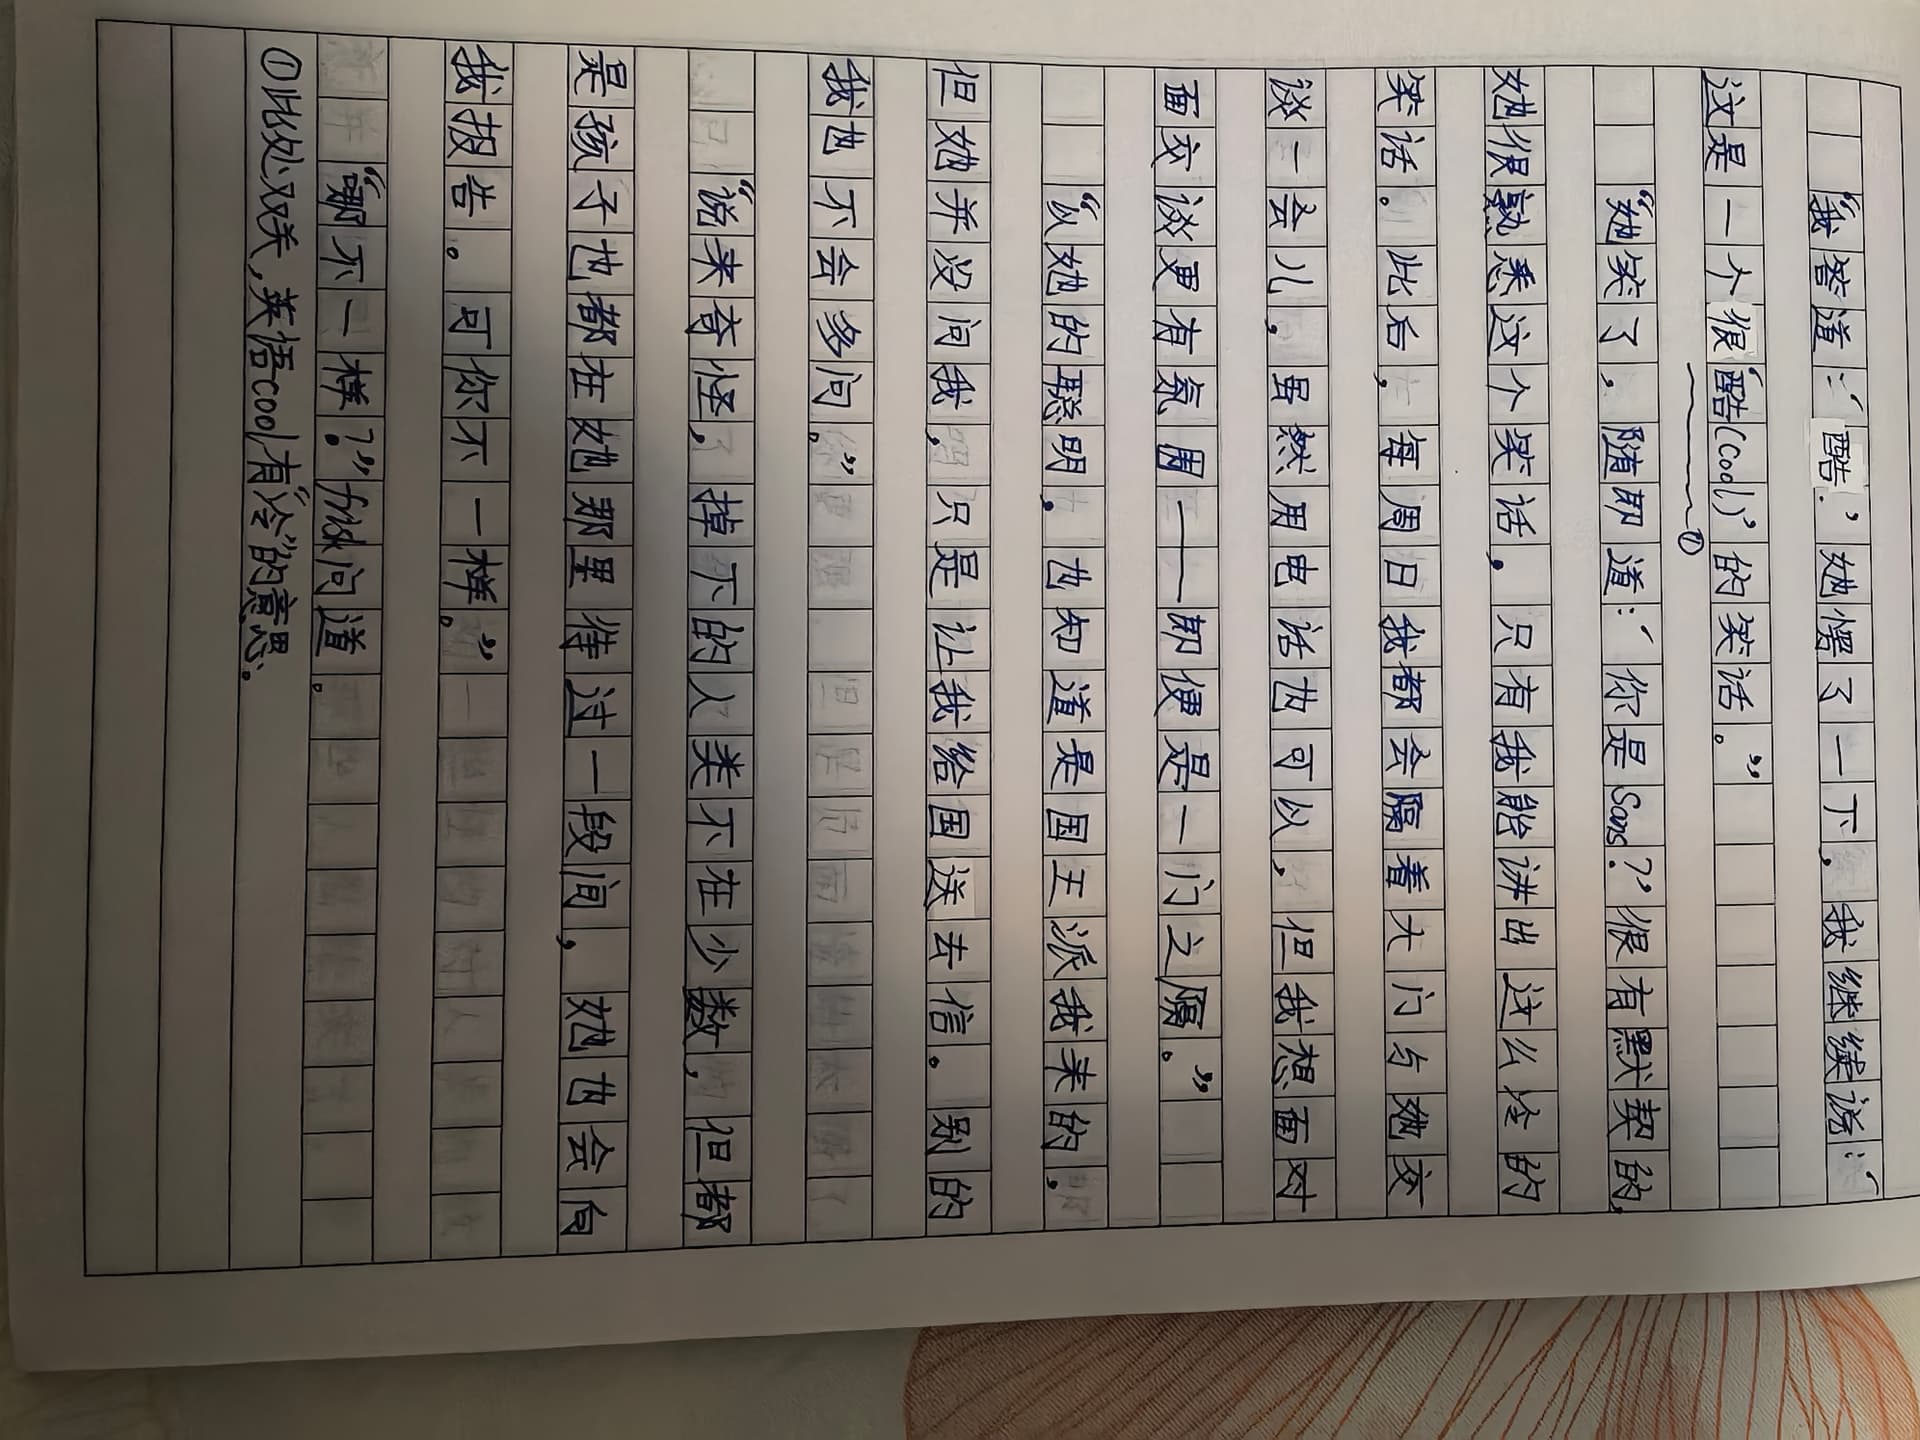 “我答道:‘酷.’她愕了一下,我继续话:‘
这是一个很“酷(Cool)”的笑话。’”
“她笑了,随即道:‘你是Sans?’很有默契的,
她很熟悉这个笑话,只有我能讲出这么冷的
笑话。此后,每周日我都会隔着大门与她交
谈一会儿,虽然用电话也可以,但我想面对
面交谈更有氛围——即便是一门之隔。”
“以她的聪明,也知道是国王派我来的,
但她并没问我,只是让我给国送去信。别的
我也不会多问。”
“说来奇怪,掉下的人类不在少数,但都
是孩子也都在她那里待过一段间,她也会向
我报告。可你不一样。”
“哪不一样?”frisk问道。
①此处双关,英悟cool有“冷”的意思.
①